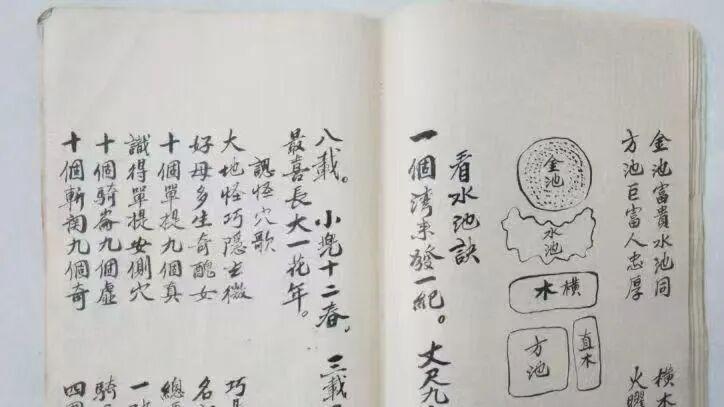 金池富貴水池同
方池巨富人忠厚
橫木
火曜
金池
水池
橫木
方池
直木
看水池訣
一個湾來發一紀。丈尺九
八載。小兜十二春。三載
最喜長大一花年。
認怪穴歌
大地怪巧隱玄微
巧
好母多生奇醜女
名
十個單提九個真
總
識得單提安側穴
一
十個騎崙九個虛
騎
十個斬関九個奇
四